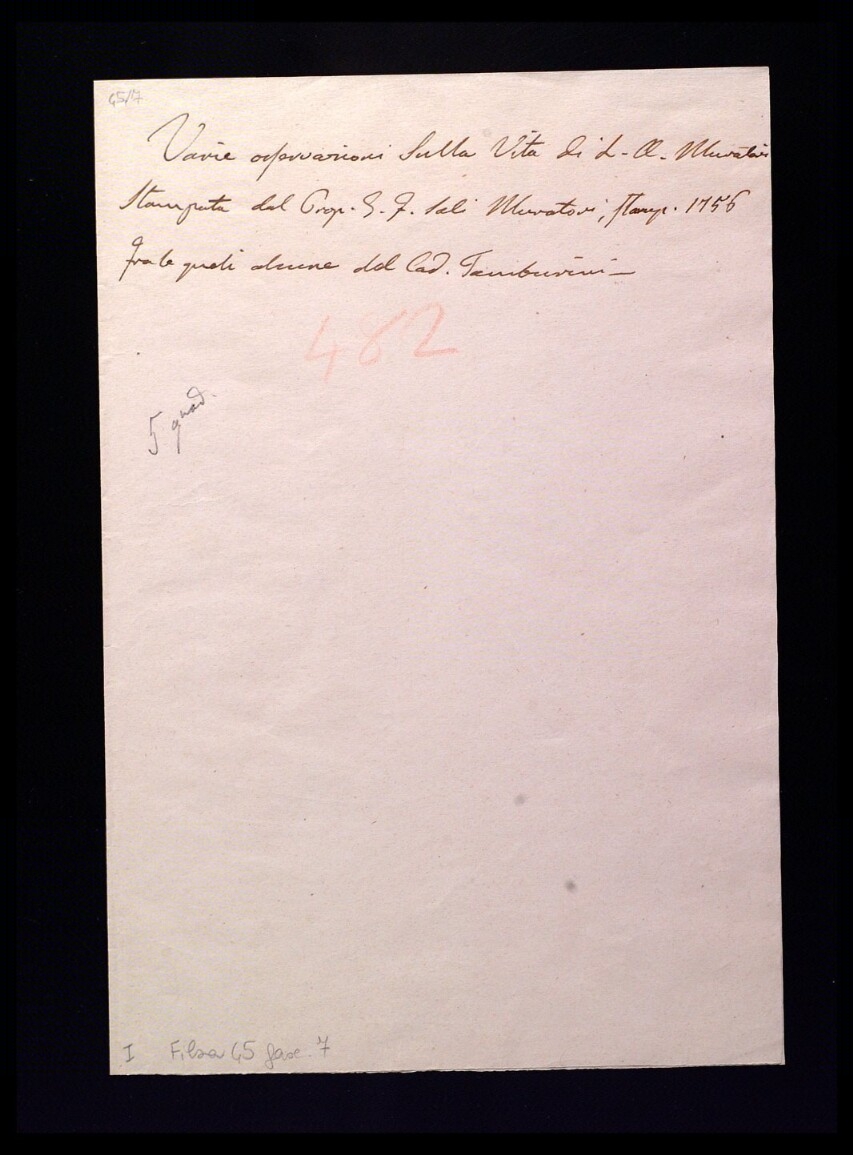 45/7
Varie osservazioni Sulla Vita di L. A. Muratori
Stampata dal Prop. G. F. Soli Muratori, stamp. 1756
fra le quali alcune del Cad. Tamburini
482
5 quad.
I Filza 45 fasc. 7